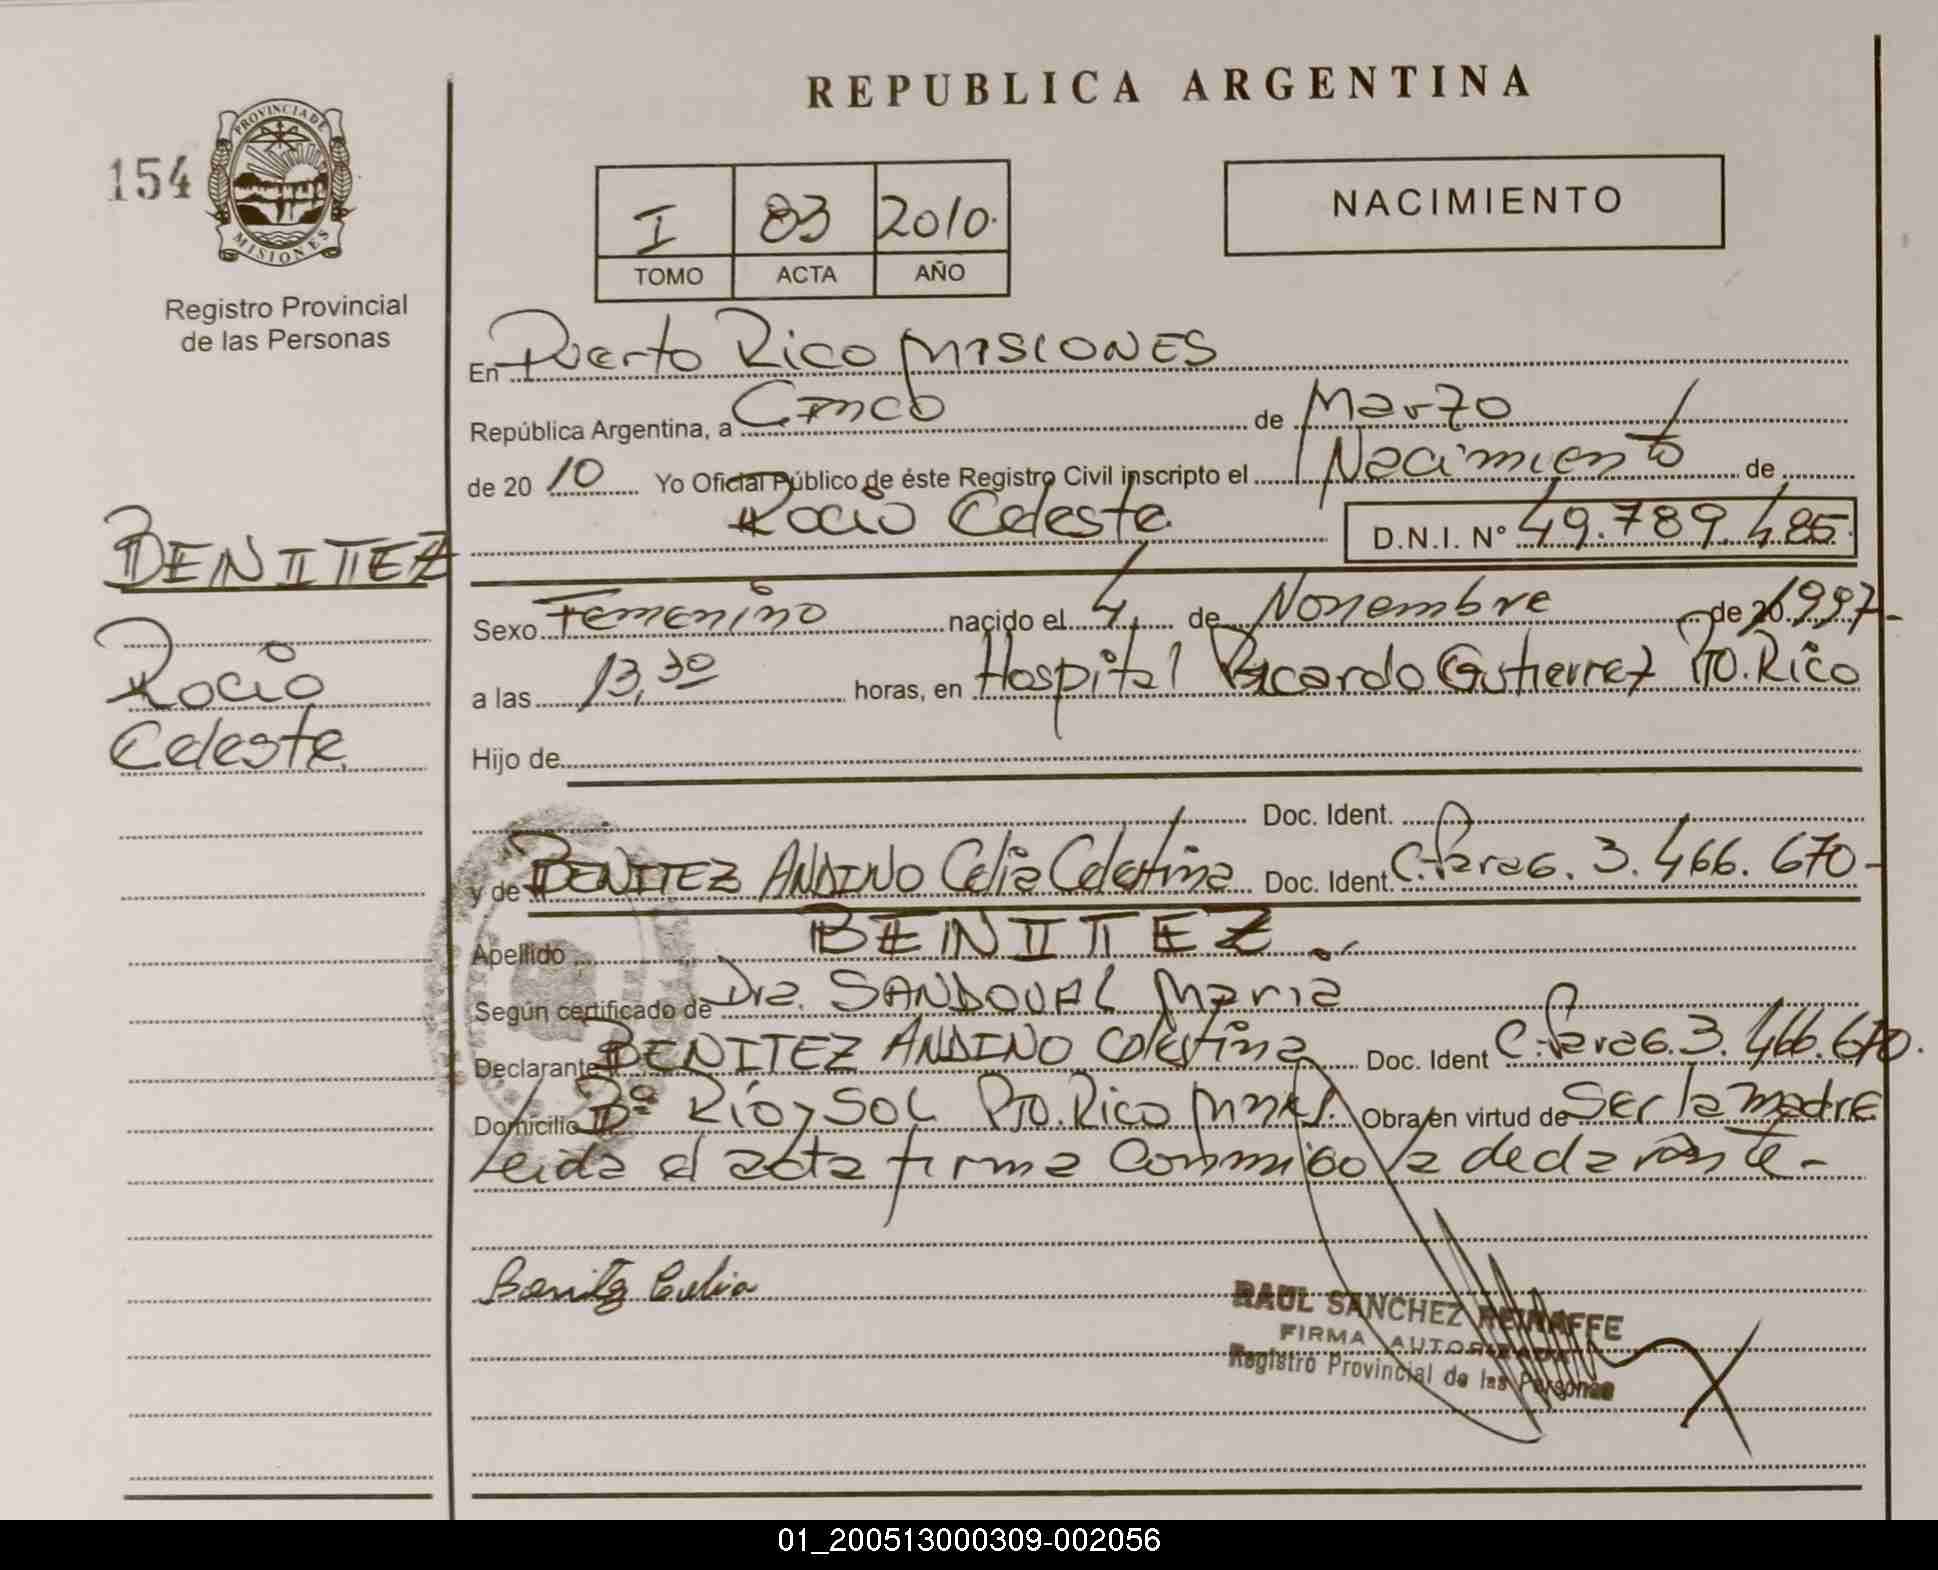 REPUBLICA ARGENTINA
154
PROVINCIA DE
MISIONES
Registro Provincial
de las Personas
I 83 2010.
TOMO ACTA AÑO
NACIMIENTO
En Puerto Rico MISIONES
República Argentina, a Cinco de Marzo
de 20 10 Yo Oficial Público de éste Registro Civil inscripto el Nacimiento de
Rocio Celeste D.N.I. N° 49.789.485.
BENITEZ
Rocio
Celeste
Sexo Femenino nacido el 4 de Noviembre de 1997-
a las 13,30 horas, en Hospital Ricardo Gutierrez PTO. Rico
Hijo de
Doc. Ident.
y de BENITEZ ANDINO Celia Celestina Doc. Ident. C. Parag. 3.466.670-
Apellido BENITEZ.
Según certificado de Dra. SANDOVAL Maria
Declarante BENITEZ ANDINO Celestina Doc. Ident C. Parag. 3.466.670.
Domicilio Bº Río y SOL PTO. Rico Obra en virtud de Ser la madre
Leida el acta firma conmigo la declarante-
Benitez Celia
RAUL SANCHEZ
FIRMA AUTORIZADA
Registro Provincial de las Personas
01_200513000309-002056